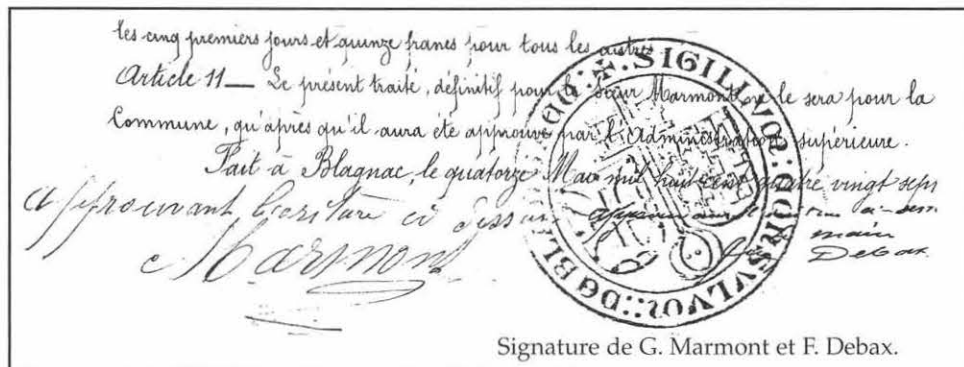 les cinq premiers jours et quinze francs pour tous les autres.
Article 11 — Le présent traité, définitif pour le sieur Marmont, ne le sera pour la
Commune, qu'après qu'il aura été approuvé par l'Administration supérieure.
Fait à Blagnac, le quatorze Mai mil huit cent quatre vingt sept
Approuvant l'écriture ci dessus
Marmont
ci-dessus
maire
Debax
SIGILLVOR: CONSVLVOR: DE BL
Signature de G. Marmont et F. Debax.